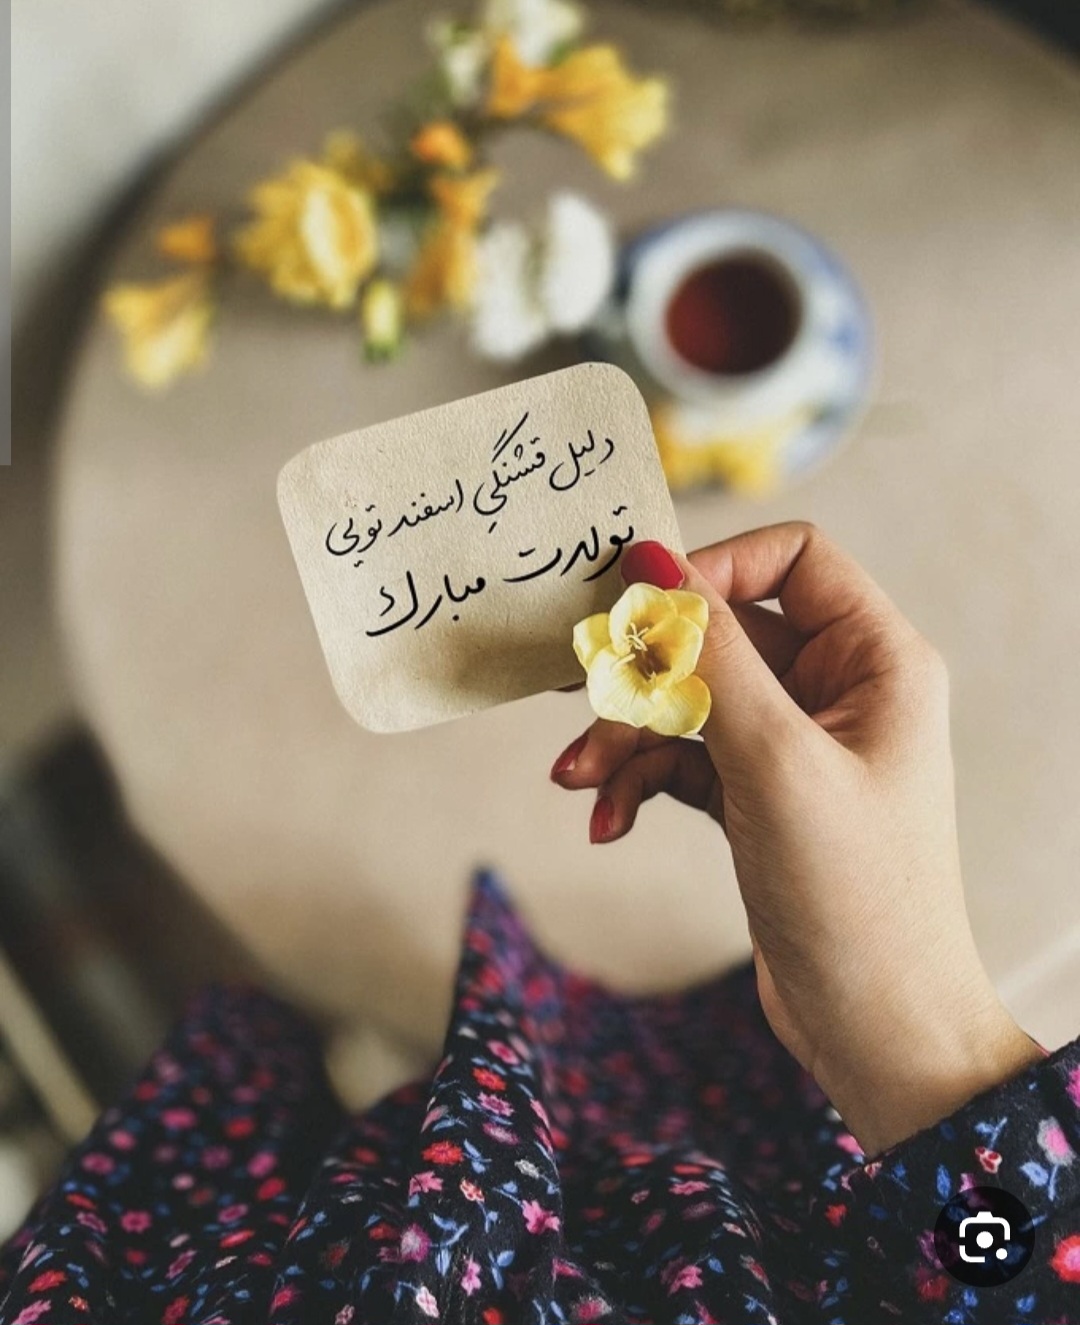 دلیل قشنگیِ اسفند تویی
تولدت مبارک